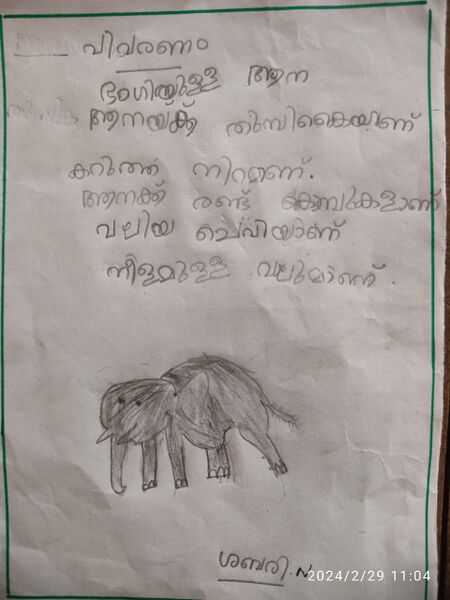 വിവരണം
ഭംഗിയുള്ള ആന
ആനയ്ക്ക് തുമ്പികൈയാണ്
കറുത്ത നിറമാണ്.
ആനക്ക് രണ്ട് കൊമ്പുകളാണ്
വലിയ ചെവിയാണ്
നീളമുള്ള വലുമാണ്.
ശബരി.N
2024/2/29 11:04